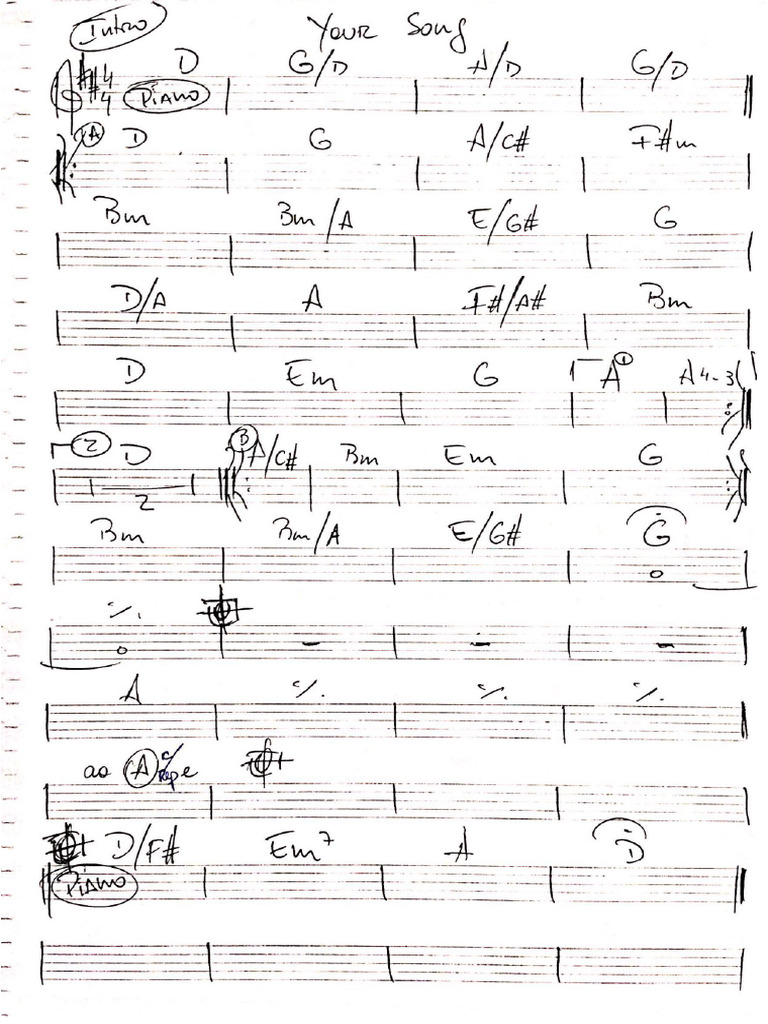 Intro Your Song
D G/D A/D G/D
4/4 Piano
A D G A/C# F#m
Bm Bm/A E/G# G
D/A A F#/A# Bm
D Em G 1 A A4-3
2 D B A/C# Bm Em G
2
Bm Bm/A E/G# G
٪
A ٪ ٪ ٪
ao A c/ Repe
D/F# Em7 A D
Piano